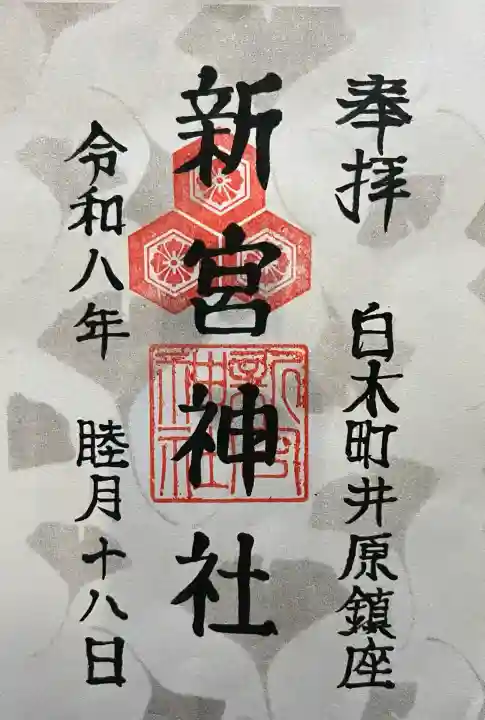 奉拝
白木町井原鎮座
新宮神社
新宮神社
令和八年
睦月十八日